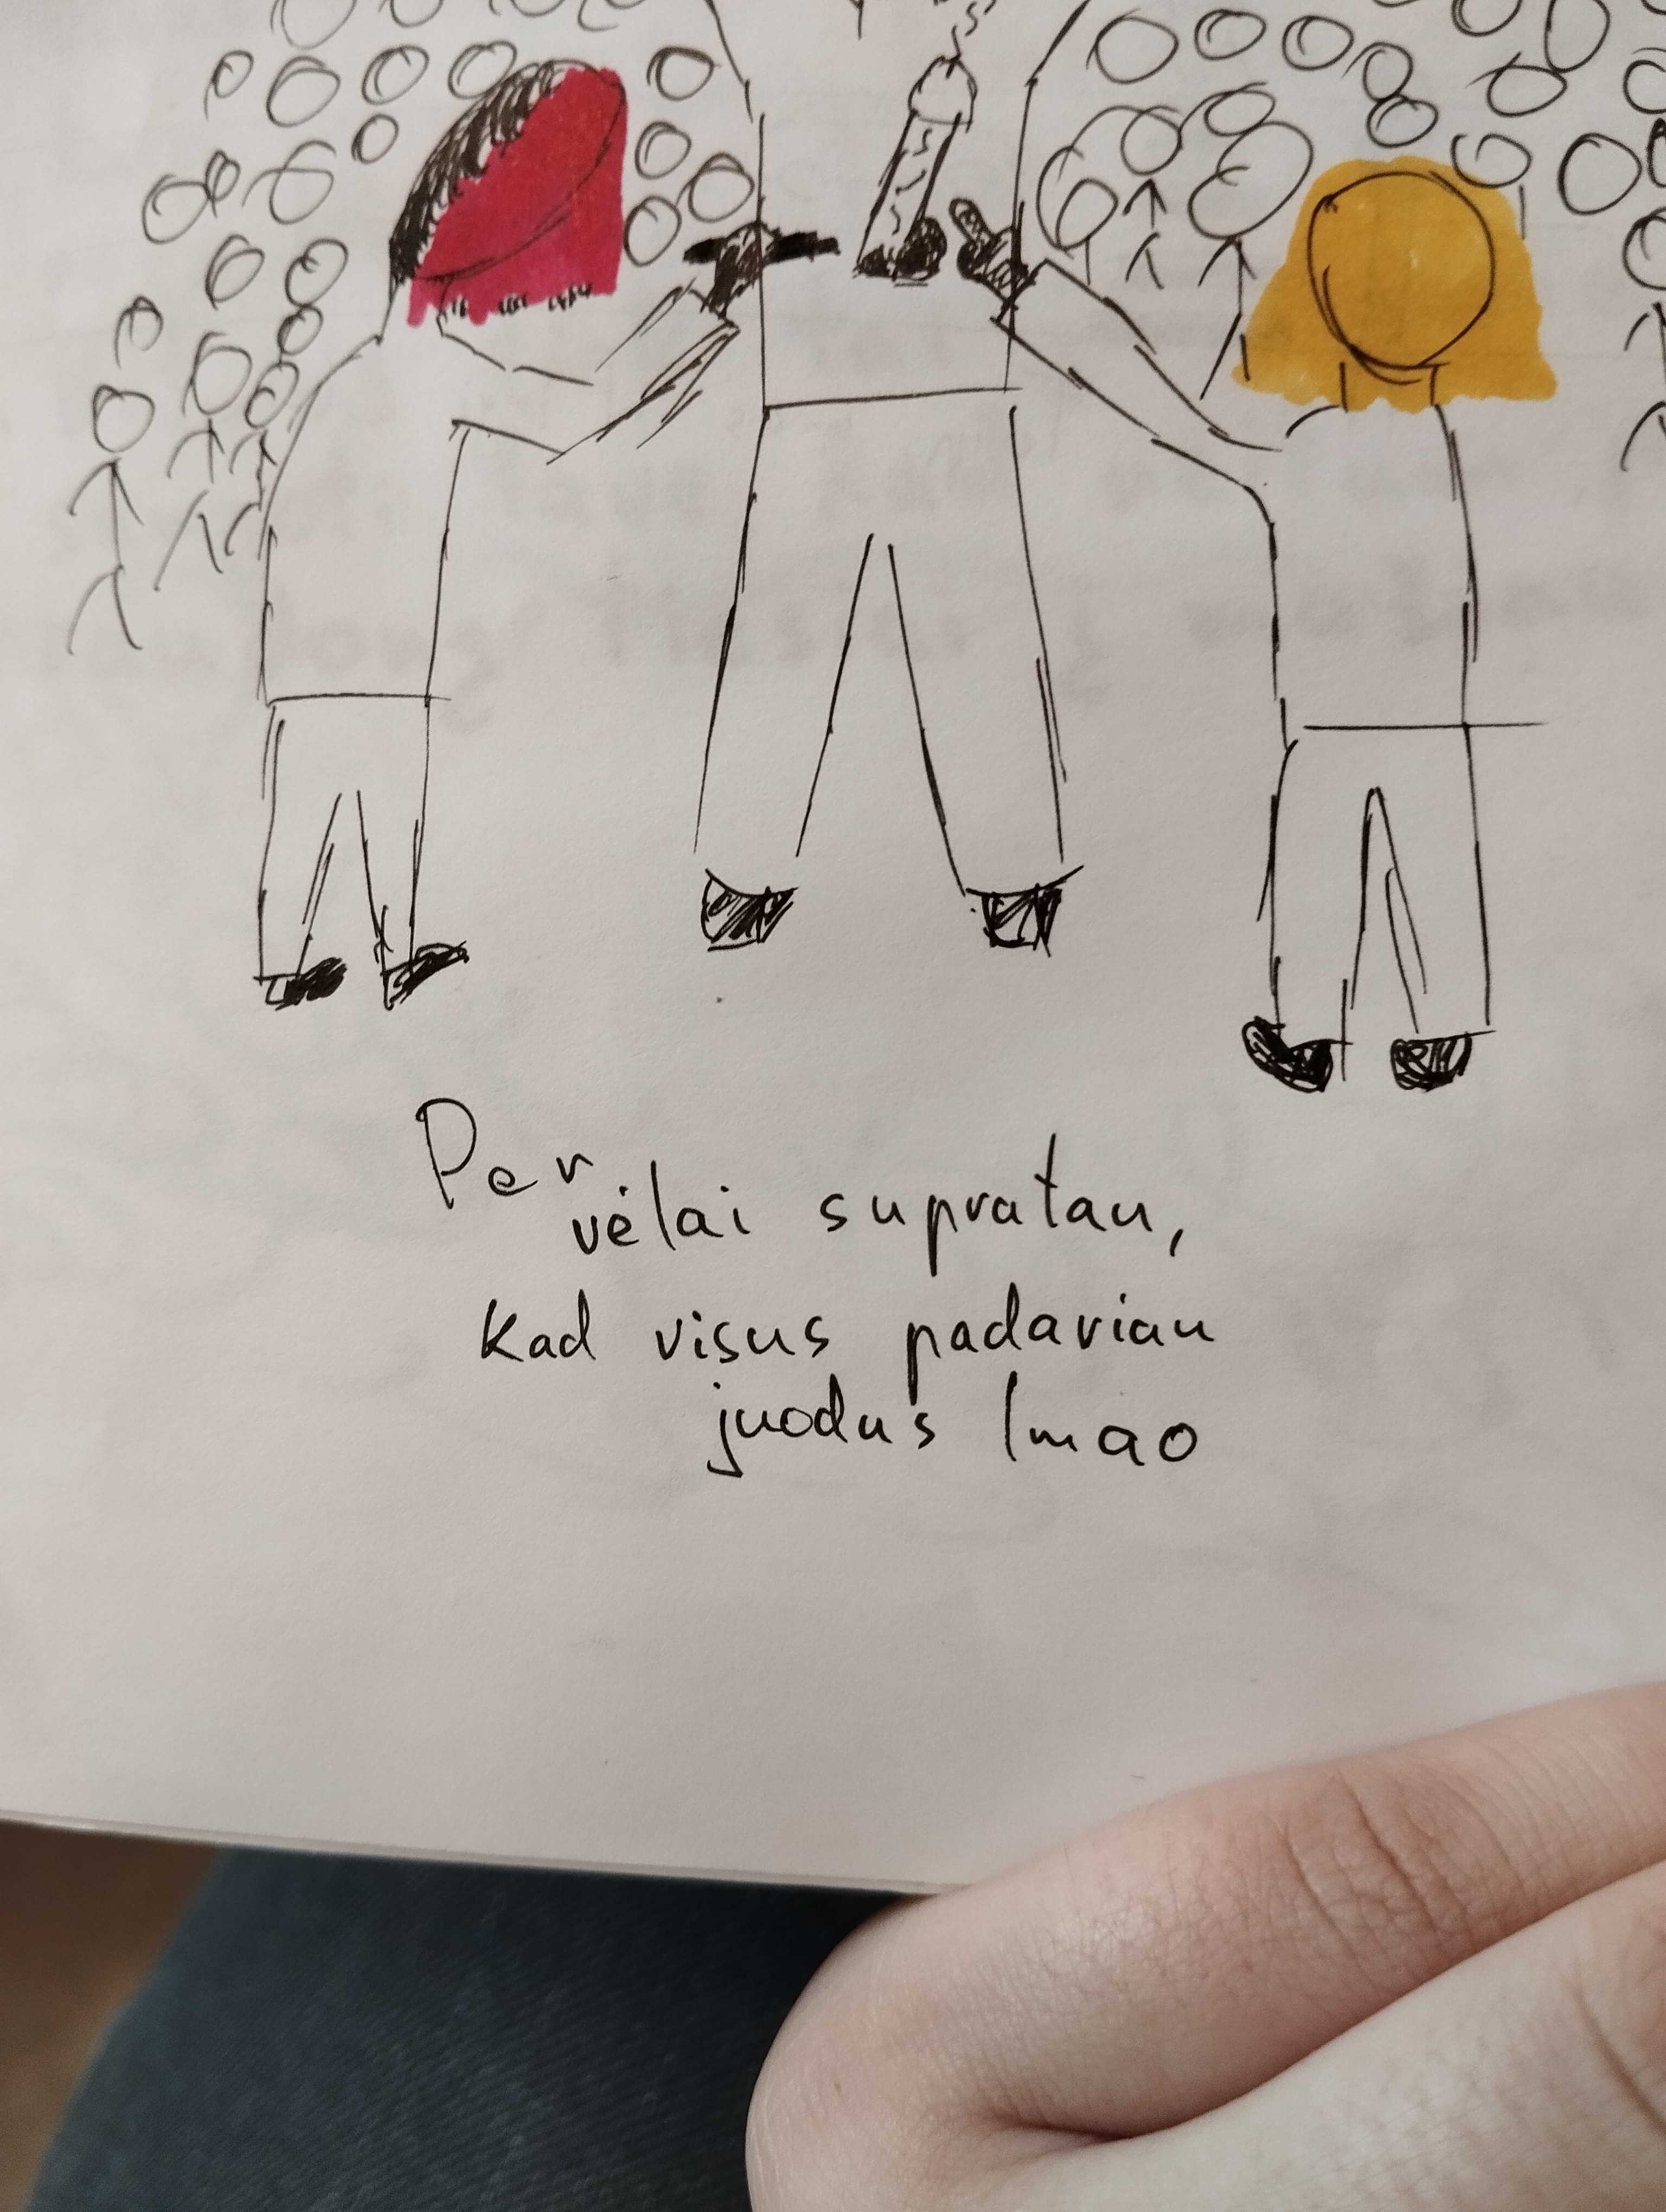 Per
vėlai supratau,
kad visus padariau
juodus lmao